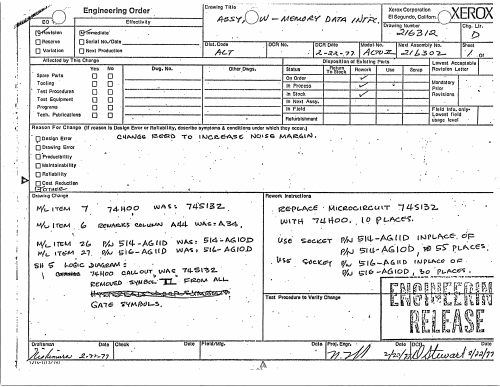 Engineering Order
Drawing Title
ASSY, W - MEMORY DATA INTFC.
Xerox Corporation
El Segundo, California
XEROX
EO
Effectivity
Revision
Immediate
Reserve
Serial No./Date
Variation
Next Production
Drawing Number
216312
Chg. Ltr.
D
Dist. Code
ACT
DCR No.
DCR Date
2-22-77
Model No.
Next Assembly No.
216302
Sheet
1 Of 1
Affected by This Change
Yes
No
Dwg. No.
Other Dwgs.
Disposition of Existing Parts
Status
Return To Stock
Rework
Use
Scrap
Lowest Acceptable Revision Letter
Spare Parts
Tooling
Test Procedures
Test Equipment
Programs
Tech. Publications
On Order
In Process
In Stock
In Next Assy.
In Field
Refurbishment
Mandatory Prior Revisions
Field Info. only-
Lowest field
usage level
Reason For Change (If reason is Design Error or Reliability, describe symptoms & conditions under which they occur.)
Design Error
CHANGE REQD TO INCREASE NOISE MARGIN.
Drawing Error
Producibility
Maintainability
Reliability
Cost Reduction
Other
Drawing Change
M/L ITEM 7 74H00 WAS: 74S132
M/L ITEM 6 REMARKS COLUMN A44 WAS: A34,
M/L ITEM 26 P/N 514-AG11D WAS: 514-AG10D
M/L ITEM 27 P/N 516-AG11D WAS: 516-AG10D
SH 5 LOGIC DIAGRAM:
74H00 CALLOUT WAS 74S132
REMOVED SYMBOL FROM ALL
GATE SYMBOLS.
Rework Instructions
REPLACE MICROCIRCUIT 74S132
WITH 74H00. 10 PLACES.
USE SOCKET P/N 514-AG11D INPLACE OF
P/N 514-AG10D, 55 PLACES.
USE SOCKET P/N 516-AG11D INPLACE OF
P/N 516-AG10D, 30 PLACES.
Test Procedure to Verify Change
ENGINEERIN
RELEASE
Draftsman
Date
Check
Date
Field/Mfg.
Date
Proj. Engr.
Date
DCO
Date
2-22-77
2/22/77
Stewart 2/22/77